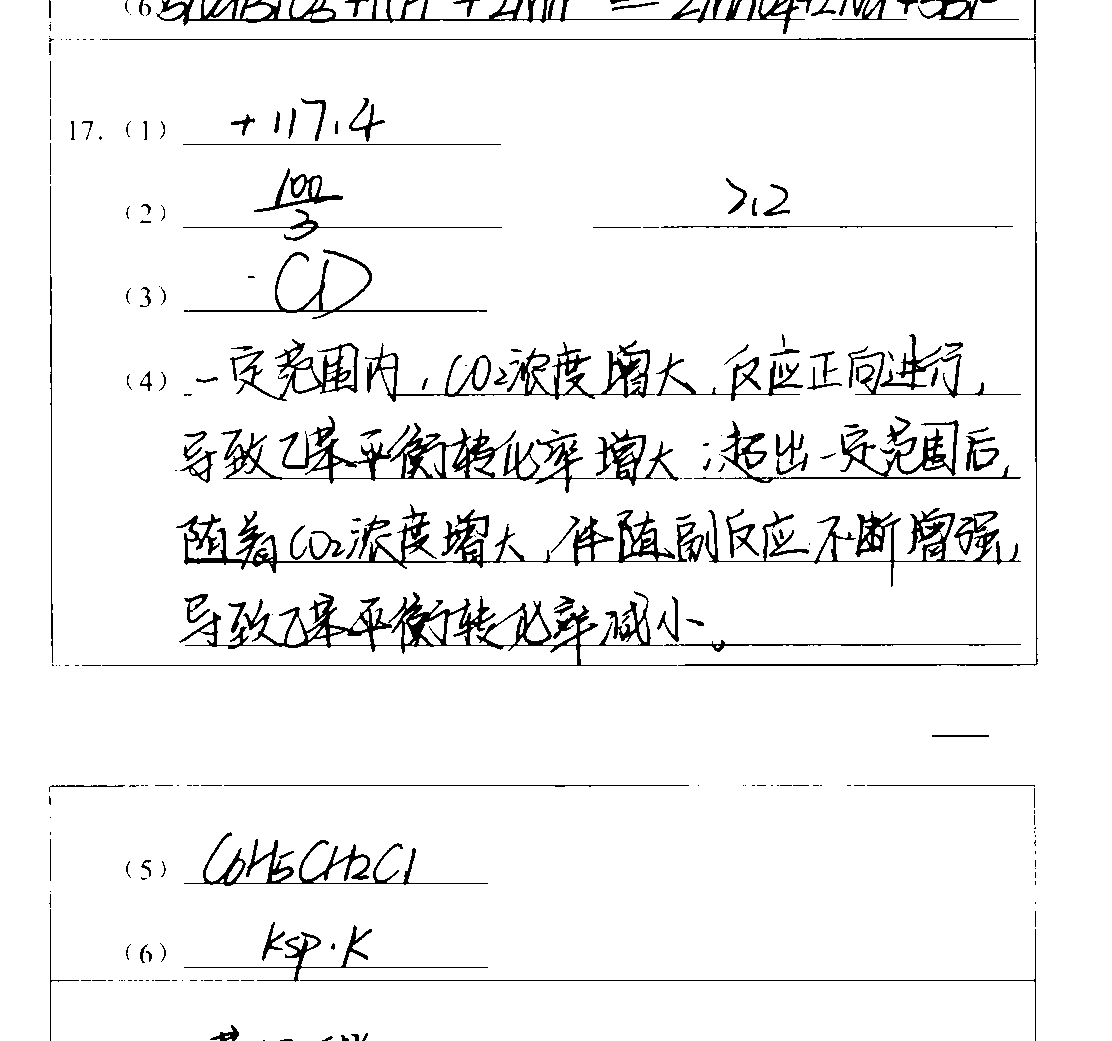 (6) 5NaBiO3+14H+ + 2Mn = 2MnO4+5Na+5Bi
17. (1) +117.4
(2) 100/3 >.2
(3) CD
(4) 一定范围内，CO2浓度增大，反应正向进行，
导致乙苯平衡转化率增大；超出一定范围后，
随着CO2浓度增大，伴随副反应不断增强，
导致乙苯平衡转化率减小。
(5) C6H5CH2Cl
(6) Ksp·K